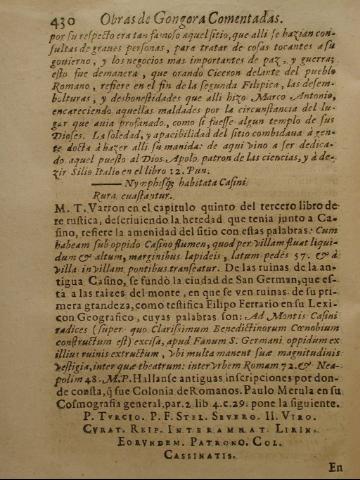 430 Obras de Gongora Comentadas.
por su respecto era tan famoso aquel sitio, que alli se hazian con-
sultas de graues personas, para tratar de cosas tocantes a su
gouierno, y los negocios mas importantes de paz, y guerra;
esto fue demanera, que orando Ciceron delante del pueblo
Romano, refiere en el fin de la segunda Filipica, las desem-
bolturas, y deshonestidades que alli hizo Marco Antonio,
encareciendo aquellas maldades por la circunstancia del lu-
gar que auia profanado, como si fuesse algun templo de sus
Dioses. La soledad, y apacibilidad del sitio combidaua à gen-
te docta à hazer alli su manida: de aqui vino a ser dedica-
do aquel puesto al Dios Apolo, patron de las ciencias, y à de-
zir Silio Italio en el libro 12. Pun.
Nymphisq; habitata Casini
Rura euastantur.
M. T. Varron en el capitulo quinto del tercero libro de
re rustica, descriuiendo la heredad que tenia junto a Ca-
sino, refiere la amenidad del sitio con estas palabras: Cum
habeam sub oppido Casino flumen, quod per villam fluat liqui-
dum & altum, marginibus lapideis, latum pedes 57. & à
villa in villam pontibus transeatur. De las ruinas de la an-
tigua Casino, se fundò la ciudad de San German, que es-
tà a las raizes del monte, en que se ven ruinas de su pri-
mera grandeza, como testifica Filipo Ferrario en su Lexi-
con Geografico, cuyas palabras son: Ad Montis Casini
radices (super quo Clarissimum Benedictinorum Cœnobium
constructum est) excisa, apud Fanum S. Germani oppidum ex
illius ruinis extructum, vbi multa manent suæ magnitudinis
vestigia, inter quæ theatrum: inter vrbem Romam 72. & Nea-
polim 48. M.P. Hallanse antiguas inscripciones por don-
de consta, q̃ fue Colonia de Romanos. Paulo Merula en su
Cosmografia general, par. 2. lib. 4. c. 29. pone la siguiente.
P. TVRCIO. P. F. STEL. SEVERO. II. VIRO.
CVRAT. REIP. INTERAMNAT. LIRIN.
EORVNDEM. PATRONO. COL.
CASSINATIS.
En